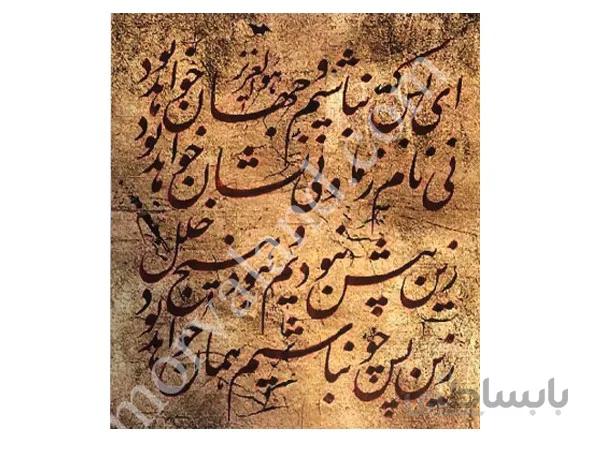 هوالعزیز
ای بس که نباشیم و جهان خواهد بود
نی نام ز ما و نی نشان خواهد بود
زین پیش نبودیم و نبد هیچ خلل
زین پس چو نباشیم همان خواهد بود
morvaland.com